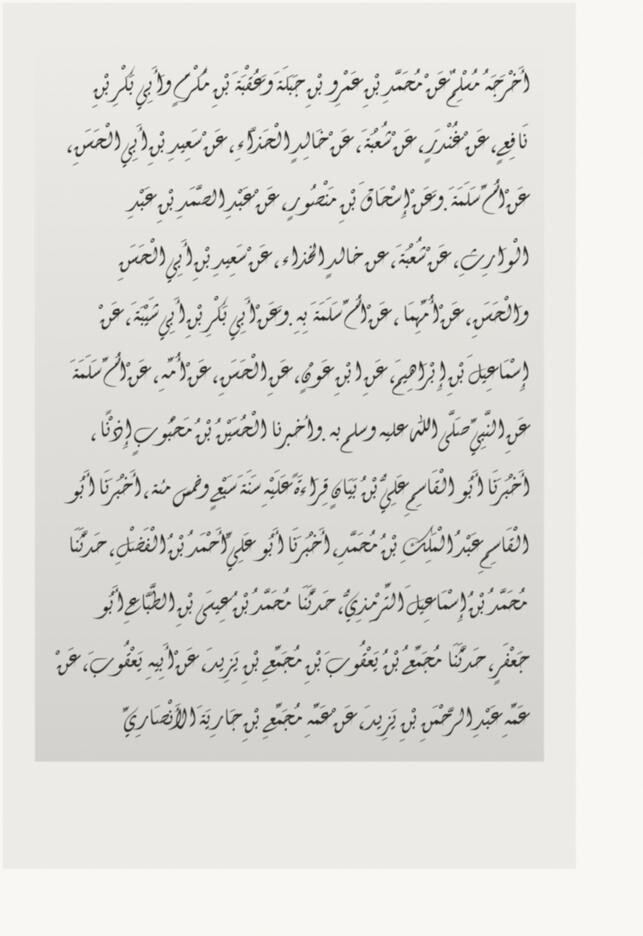 أَخْرَجَهُ مُسْلِمٌ عَنْ مُحَمَّدِ بْنِ عَمْرِو بْنِ جَبَلَةَ وَعُقْبَةَ بْنِ مُكْرَمٍ وَأَبِي بَكْرِ بْنِ
نَافِعٍ، عَنْ غُنْدَرٍ، عَنْ شُعْبَةَ، عَنْ خَالِدٍ الْحَذَّاءِ، عَنْ سَعِيدِ بْنِ أَبِي الْحَسَنِ،
عَنْ أُمِّ سَلَمَةَ. وَعَنْ إِسْحَاقَ بْنِ مَنْصُورٍ، عَنْ عَبْدِ الصَّمَدِ بْنِ عَبْدِ
الْوَارِثِ، عَنْ شُعْبَةَ، عن خالد الحذاء، عَنْ سَعِيدِ بْنِ أَبِي الْحَسَنِ
وَالْحَسَنِ، عَنْ أُمِّهِمَا، عَنْ أُمِّ سَلَمَةَ بِهِ. وَعَنْ أَبِي بَكْرِ بْنِ أَبِي شَيْبَةَ، عَنْ
إِسْمَاعِيلَ بْنِ إِبْرَاهِيمَ، عَنِ ابْنِ عَوْنٍ، عَنِ الْحَسَنِ، عَنْ أُمِّهِ، عَنْ أُمِّ سَلَمَةَ
عَنِ النَّبِيِّ صَلَّى الله عليه وسلم به. وأخبرنا الْحُسَيْنُ بْنُ مَحْبُوبٍ إِذْنًا،
أَخْبَرَنَا أَبُو الْقَاسِمِ عَلِيُّ بْنُ بَيَانٍ قِرَاءَةً عَلَيْهِ سَنَةَ سَبْعٍ وخمس مئة، أَخْبَرَنَا أَبُو
الْقَاسِمِ عَبْدُ الْمَلِكِ بْنُ مُحَمَّدٍ، أَخْبَرَنَا أَبُو عَلِيٍّ أَحْمَدُ بْنُ الْفَضْلِ، حَدَّثَنَا
مُحَمَّدُ بْنُ إِسْمَاعِيلَ التِّرْمِذِيُّ، حَدَّثَنَا مُحَمَّدُ بْنُ عِيسَى بْنِ الطَّبَّاعِ أَبُو
جَعْفَرٍ، حَدَّثَنَا مُجَمِّعُ بْنُ يَعْقُوبَ بْنِ مُجَمِّعِ بْنِ يَزِيدَ، عَنْ أَبِيهِ يَعْقُوبَ، عَنْ
عَمِّهِ عَبْدِ الرَّحْمَنِ بْنِ يَزِيدَ، عَنْ عَمِّهِ مُجَمِّعِ بْنِ جَارِيَةَ الأَنْصَارِيِّ